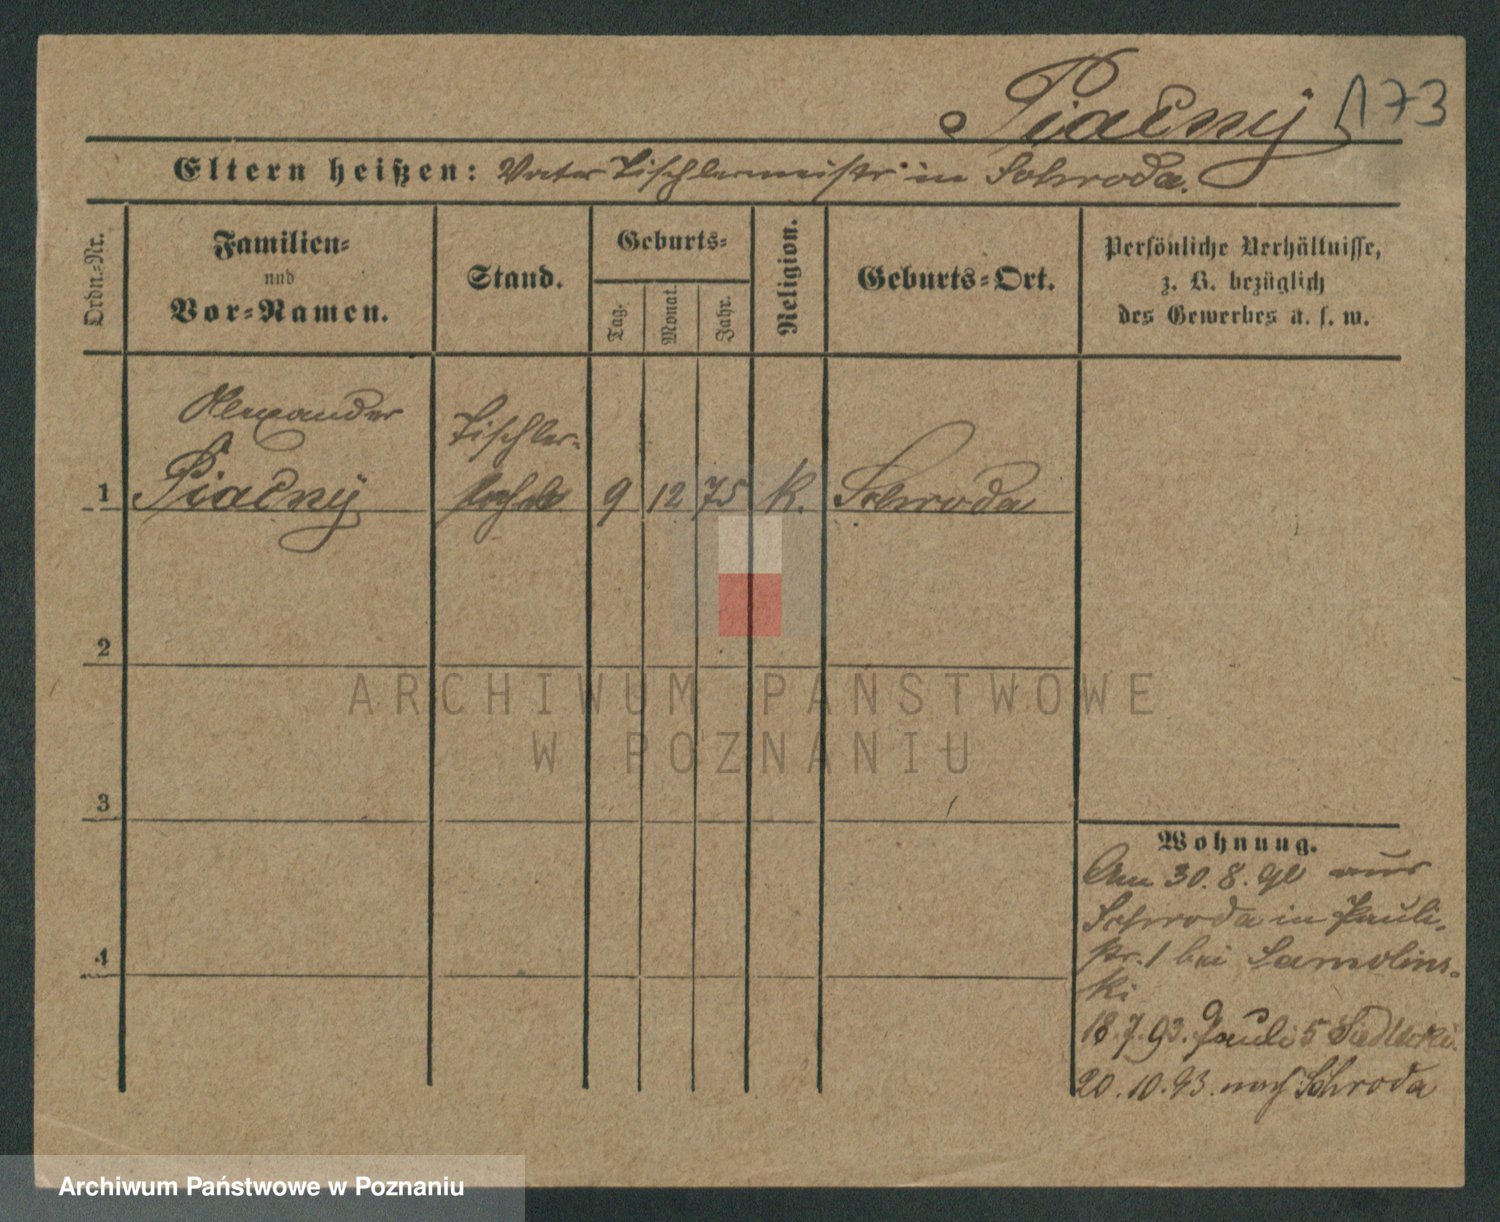 Piaćny 173
Eltern heißen: Vater Tischlermeister in Schroda.
Ordn.-Nr.
Familien-
und
Vor-Namen.
Stand.
Geburts-
Tag.
Monat.
Jahr.
Religion.
Geburts-Ort.
Persönliche Verhältnisse,
z. B. bezüglich
des Gewerbes u. s. w.
Alexander
Tischler-
1 Piaćny 9 12 75 K. Schroda
2
3
4
Wohnung.
Am 30. 8. aus
Schroda in Pauli-
str. 1 bei Samolins-
ki
18. 7. 93. Pauli 5 Siedlecki
20. 10. 93. nach Schroda
ARCHIWUM PAŃSTWOWE
W POZNANIU
Archiwum Państwowe w Poznaniu